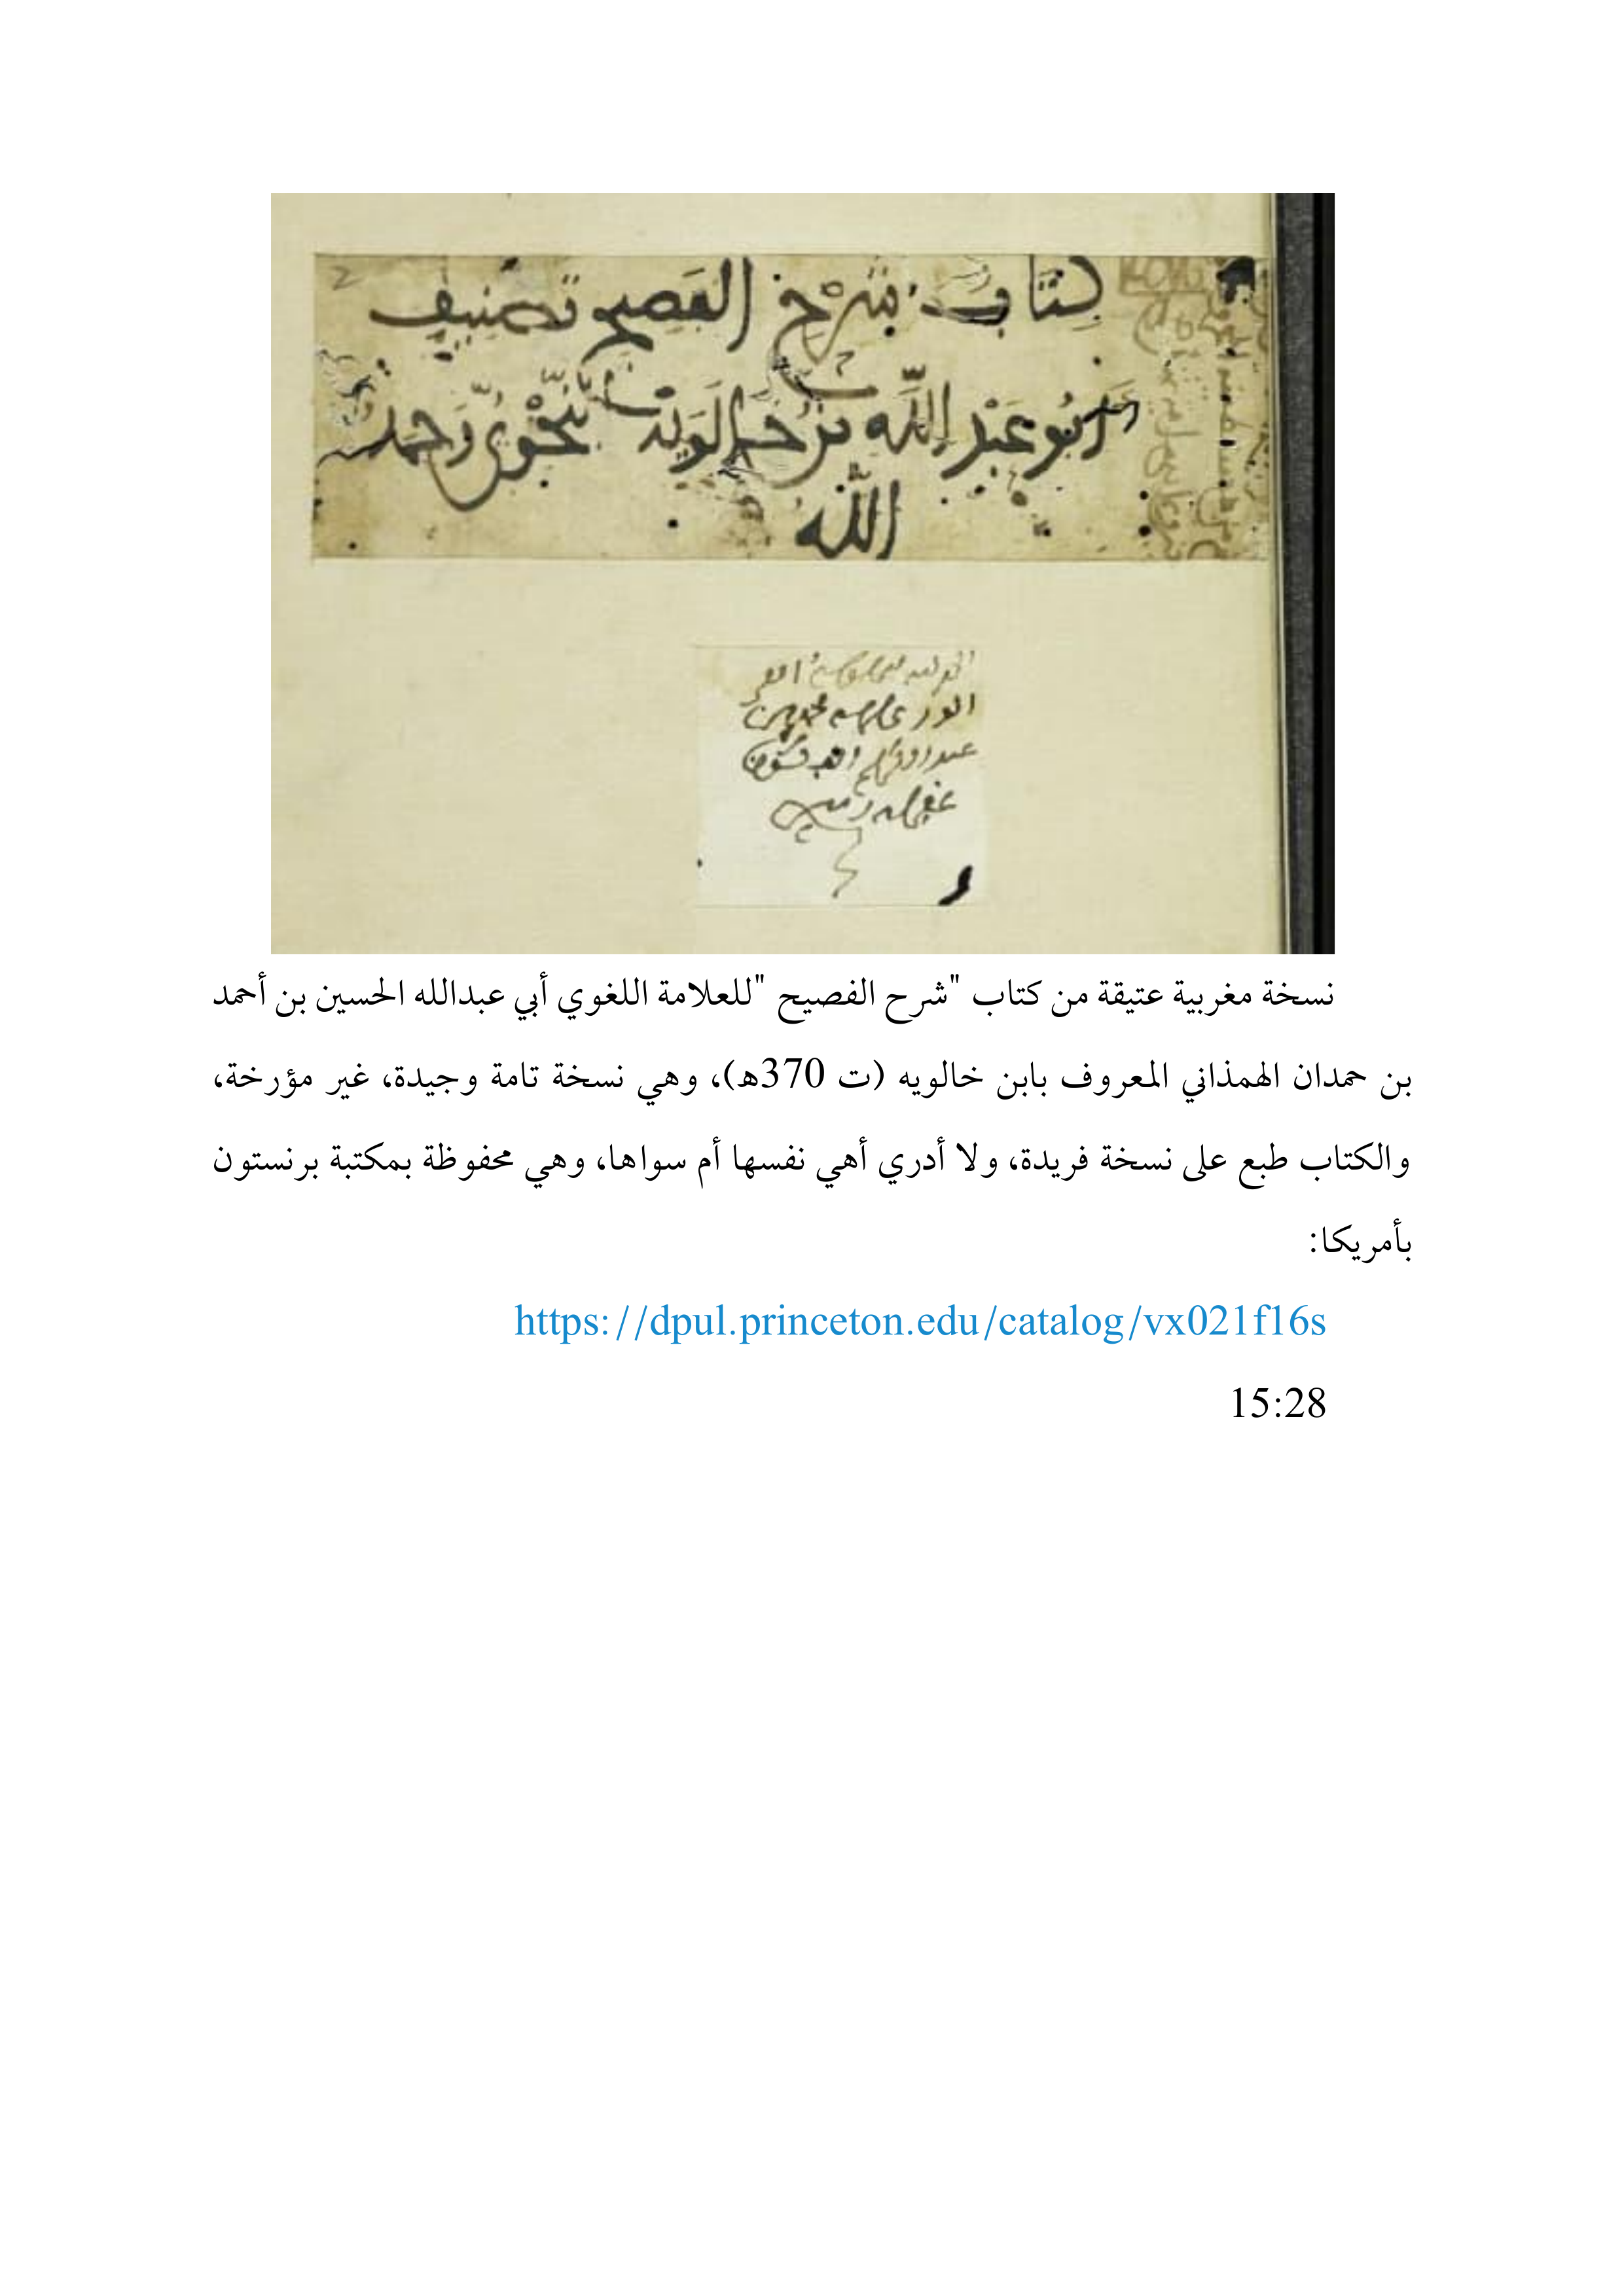 كتاب شرح الفصيح تصنيف
ابو عبد الله بن خالويه النحوي رحمه
الله
نسخة مغربية عتيقة من كتاب "شرح الفصيح "للعلامة اللغوي أبي عبدالله الحسين بن أحمد
بن حمدان الهمذاني المعروف بابن خالويه (ت 370ه)، وهي نسخة تامة وجيدة، غير مؤرخة،
والكتاب طبع على نسخة فريدة، ولا أدري أهي نفسها أم سواها، وهي محفوظة بمكتبة برنستون
بأمريكا:
https://dpul.princeton.edu/catalog/vx021f16s
15:28